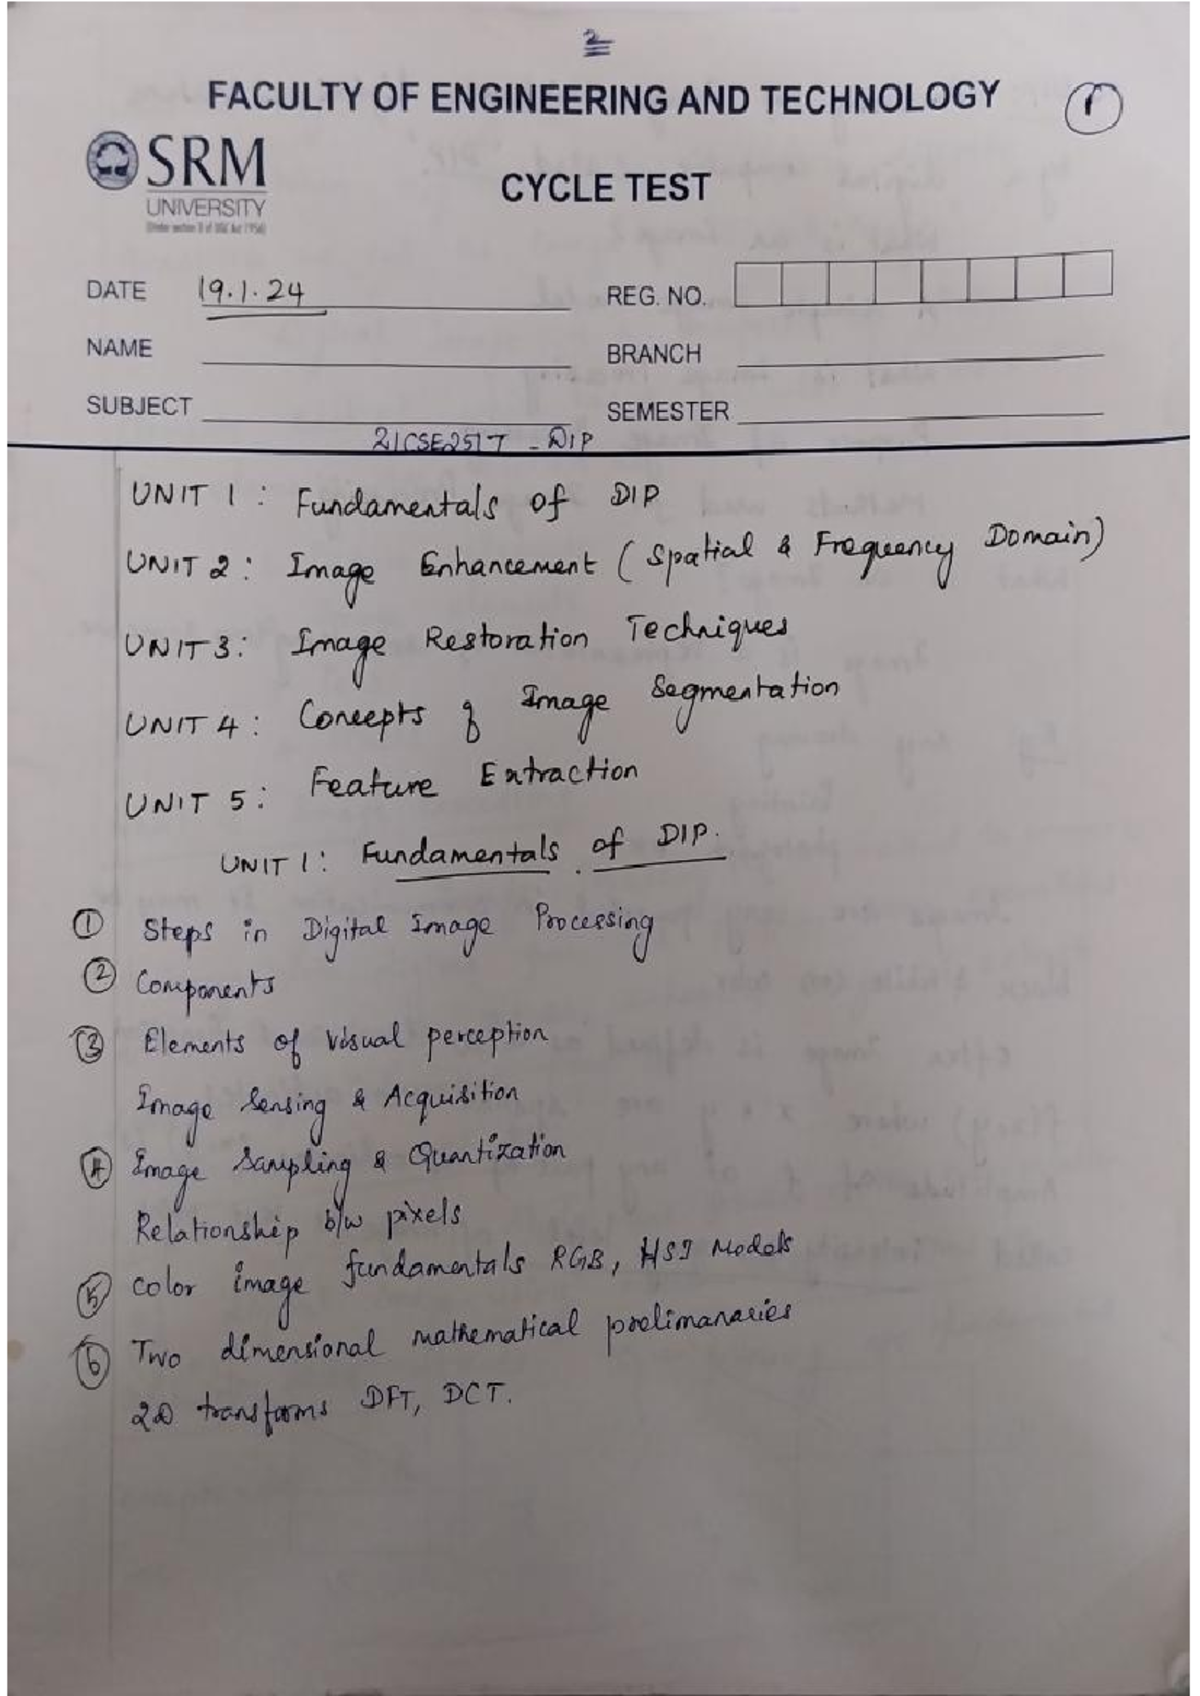 2
FACULTY OF ENGINEERING AND TECHNOLOGY
1
SRM
UNIVERSITY
(Under section 3 of UGC Act 1956)
CYCLE TEST
DATE 19.1.24
REG. NO.
NAME
BRANCH
SUBJECT
SEMESTER
21CSE251T - DIP
UNIT 1 : Fundamentals of DIP
UNIT 2 : Image Enhancement ( Spatial & Frequency Domain)
UNIT 3 : Image Restoration Techniques
UNIT 4 : Concepts of Image Segmentation
UNIT 5 : Feature Extraction
UNIT 1 : Fundamentals of DIP.
1 Steps in Digital Image Processing
2 Components
3 Elements of visual perception
Image Sensing & Acquisition
4 Image Sampling & Quantization
Relationship b/w pixels
5 color image fundamentals RGB, HSI Models
6 Two dimensional mathematical prelimanaries
2D transforms DFT, DCT.